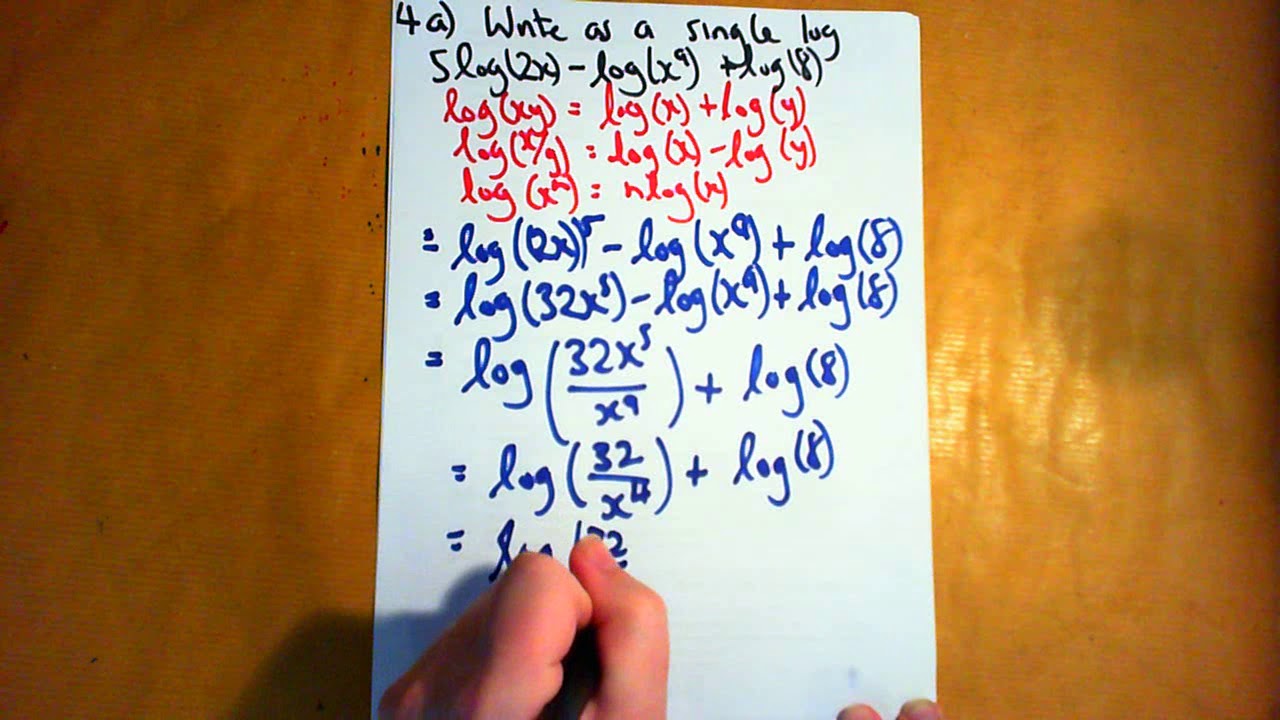 4a) Write as a single log
5log(2x) - log(x⁹) + log(8)
log(xy) = log(x) + log(y)
log(x/y) = log(x) - log(y)
log(xⁿ) = nlog(x)
= log(2x)⁵ - log(x⁹) + log(8)
= log(32x⁵) - log(x⁹) + log(8)
= log(32x⁵/x⁹) + log(8)
= log(32/x⁴) + log(8)
= log(32